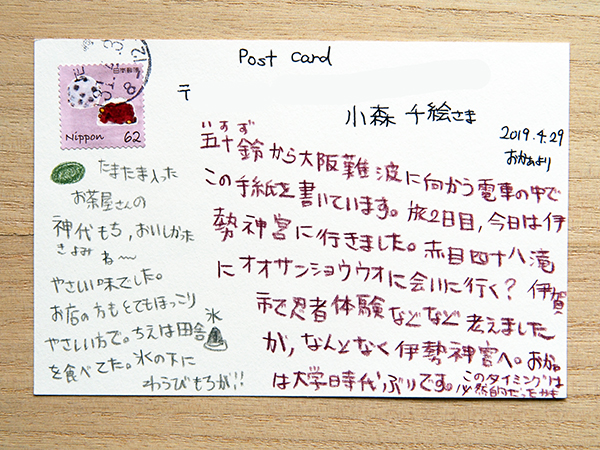 Post Card
〒
日本郵便
Nippon 62
小森 千絵さま
2019.4.29
おかぁより
すず
五十鈴から大阪難波に向かう電車の中で
この手紙を書いています。旅2日目,今日は伊
勢神宮に行きました。赤目四十八滝
にオオサンショウウオに会いに行く？伊賀
市で忍者体験などなど考えました
が,なんとなく伊勢神宮へ。おかぁ
は大学時代ぶりです。このタイミングは
必然的だったかも
たまたま入った
お茶屋さんの
神代もち,おいしかた
ね〜
やさしい味でした。
お店の方もとてもほっこり
やさしい方で。ちえは田舎氷
を食べてた。氷の下に
わらびもちが!!